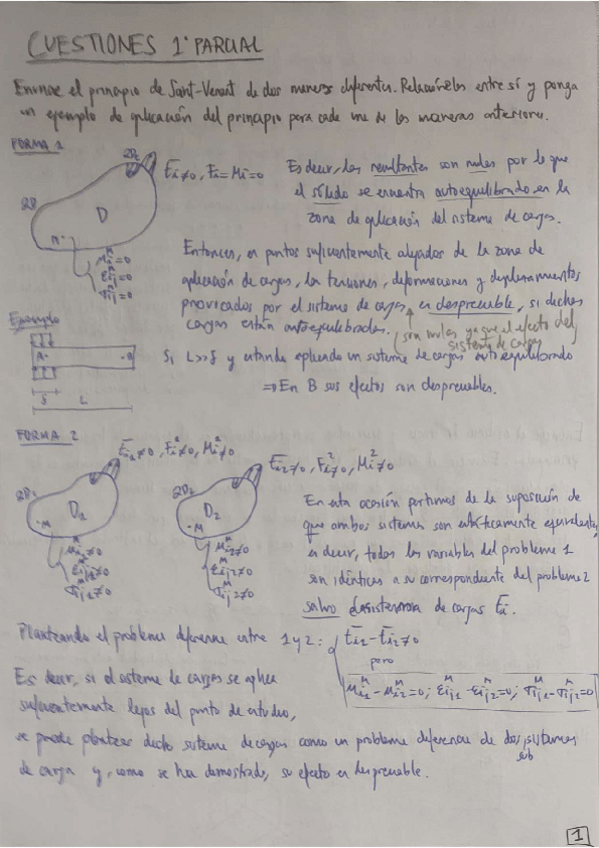 CUESTIONES 1º PARCIAL
Enuncie el principio de Saint-Venant de dos maneras diferentes. Relaciónelas entre sí y ponga
un ejemplo de aplicación del principio para cada una de las maneras anteriores.
FORMA 1
∂D
D
t̄i≠0, Fi=Mi=0
Es decir, las resultantes son nulas por lo que
el sólido se encuentra autoequilibrado en la
zona de aplicación del sistema de cargas.
ui^M=0
εij^M=0
σij^M=0
Entonces, en puntos suficientemente alejados de la zona de
aplicación de cargas, las tensiones, deformaciones y desplazamientos
provocados por el sistema de cargas es despreciable, si dichas
cargas están autoequilibradas.
(son nulas ya que el efecto del
sistema de cargas
Ejemplo
A·
·B
S
L
Si L>>S y estando aplicado un sistema de cargas autoequilibrado
⇒ En B sus efectos son despreciables.
FORMA 2
t̄i1≠0, Fi²≠0, Mi²≠0
t̄i2≠0, Fi²≠0, Mi²≠0
∂D1
D1
·M
∂D2
D2
·M
ui1^M≠0
εij1^M≠0
σij1^M≠0
ui2^M≠0
εij2^M≠0
σij2^M≠0
En esta ocasión partimos de la suposición de
que ambos sistemas son estáticamente equivalentes,
es decir, todas las variables del problema 1
son idénticas a su correspondiente del problema 2
salvo el sistema de cargas t̄i.
Planteando el problema diferencia entre 1 y 2:
t̄i1-t̄i2≠0
pero
ui1^M-ui2^M=0; εij1^M-εij2^M=0; σij1^M-σij2^M=0
Es decir, si el sistema de cargas se aplica
suficientemente lejos del punto de estudio,
se puede plantear dicho sistema de cargas como un problema diferencia de dos subsistemas
de carga y, como se ha demostrado, su efecto es despreciable.
1